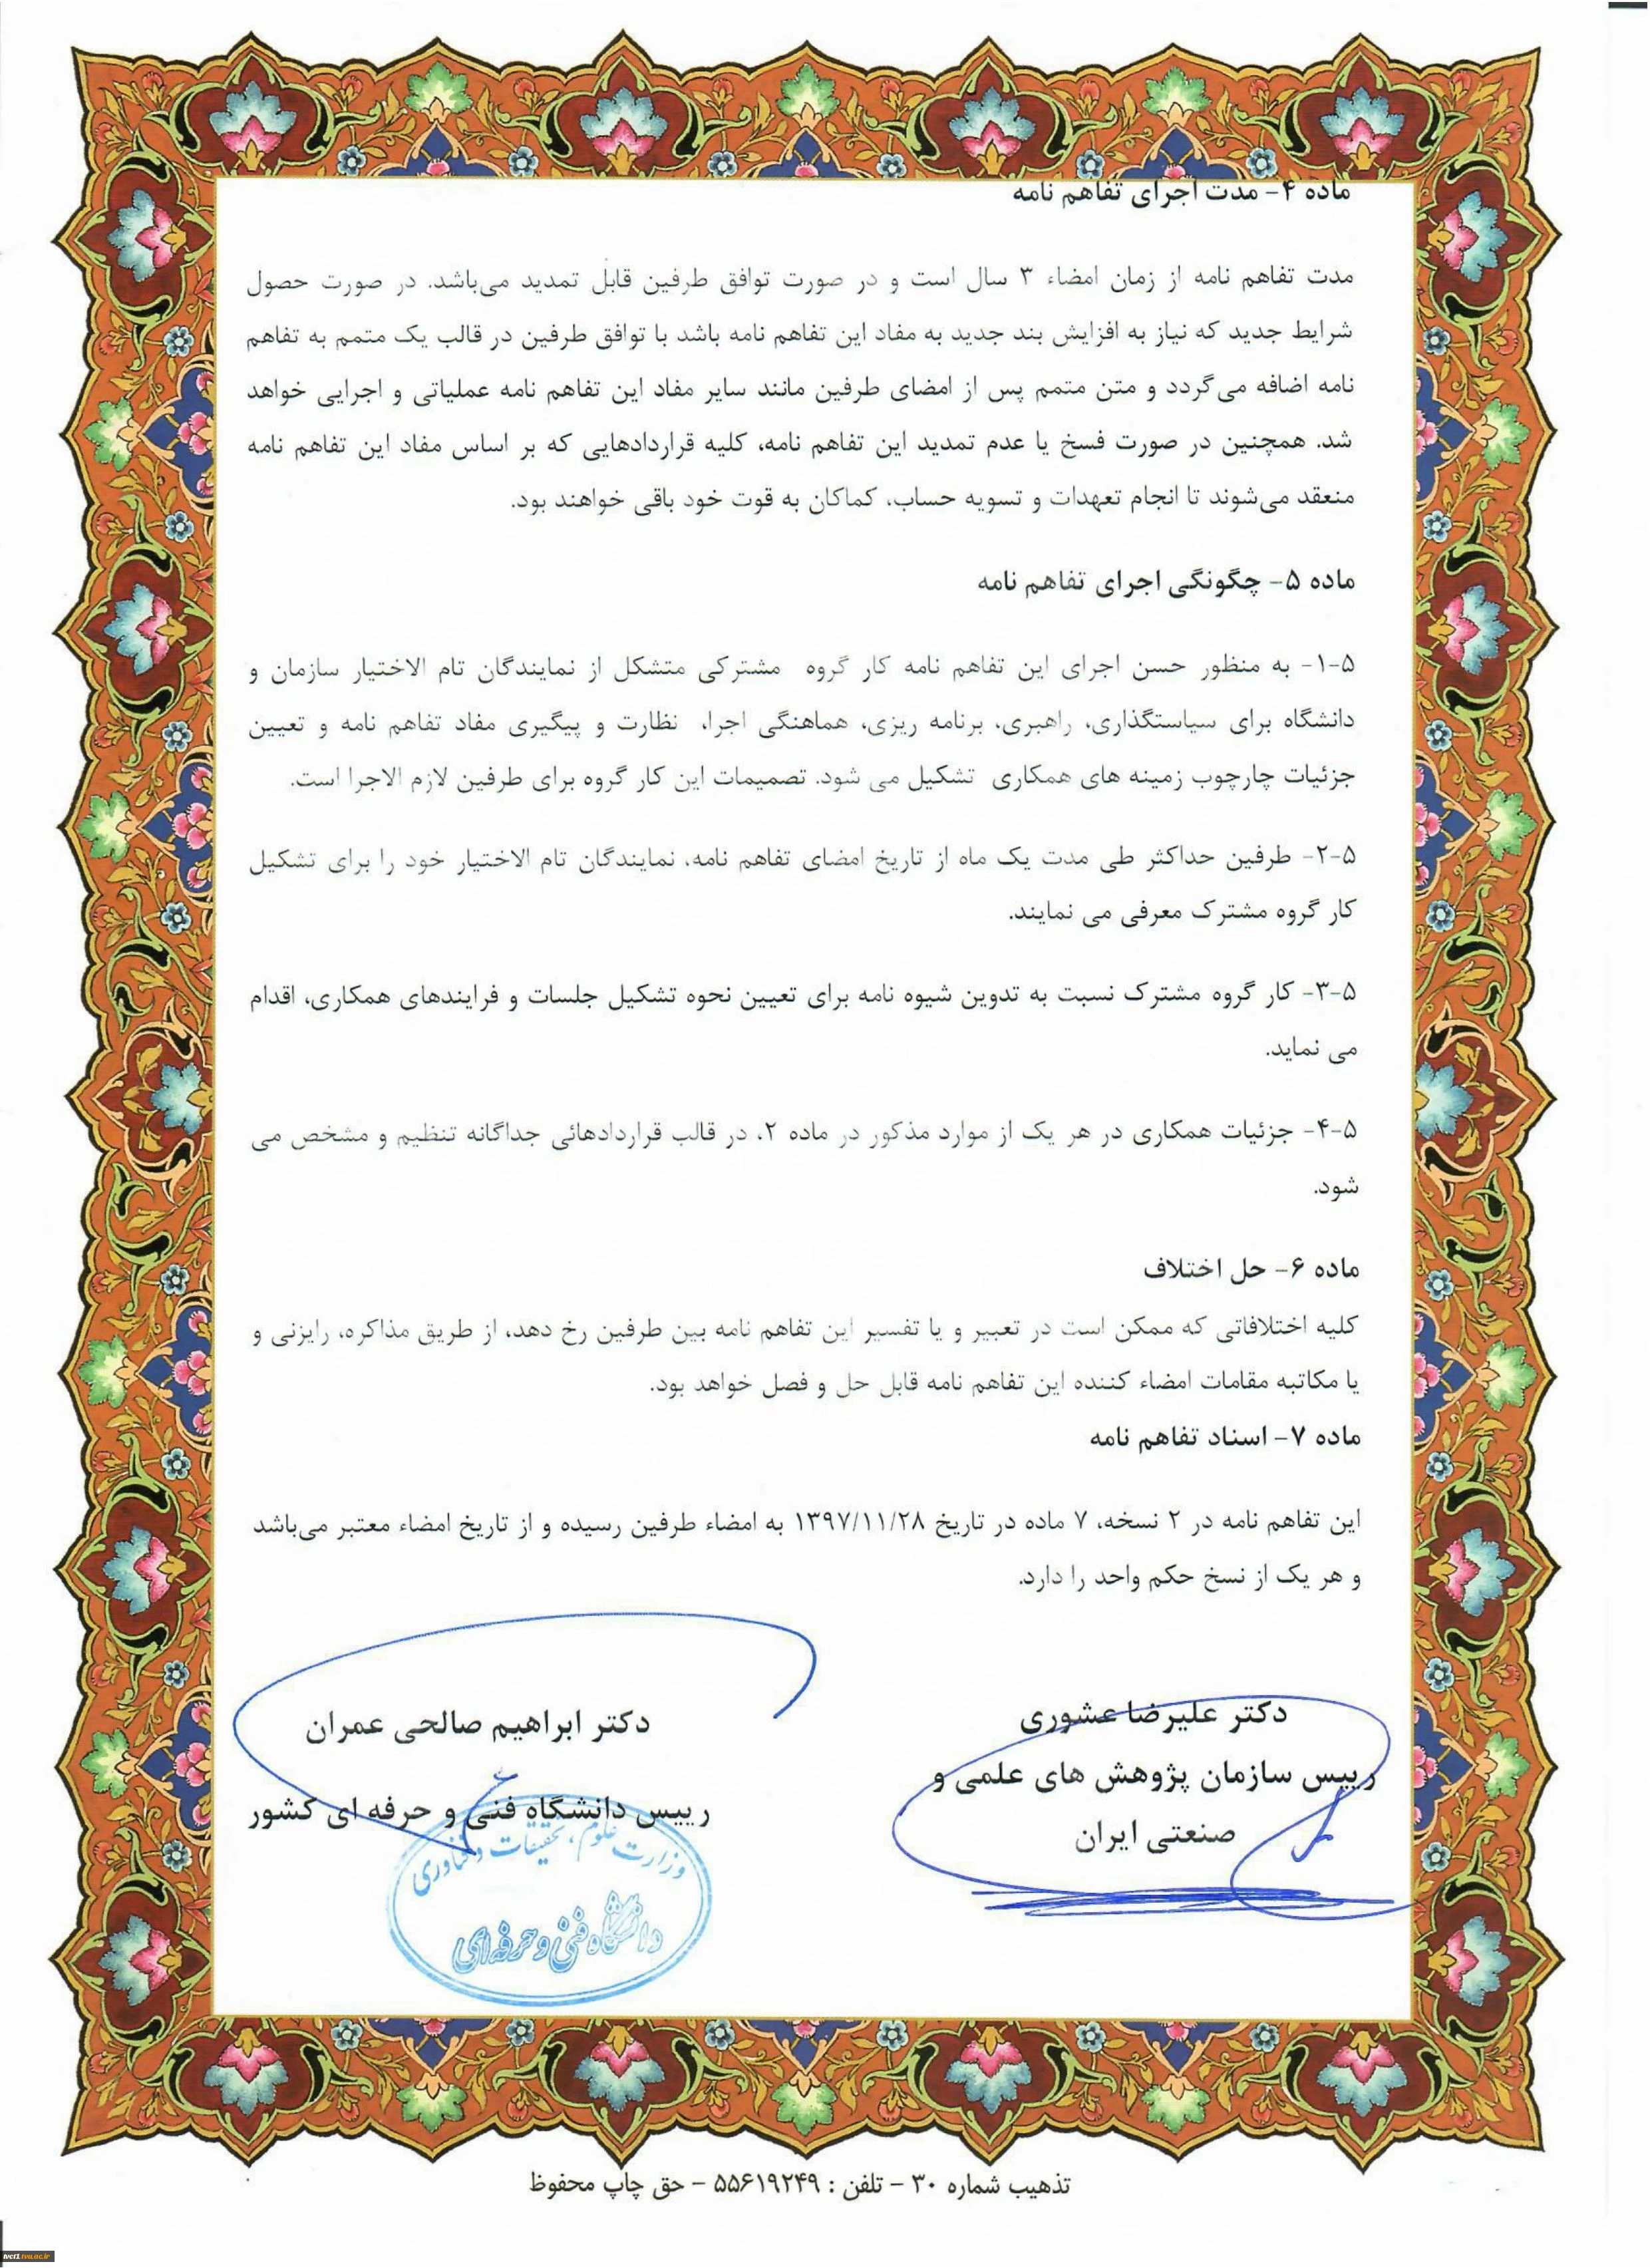 ماده ۴- مدت اجرای تفاهم نامه
مدت تفاهم نامه از زمان امضاء ۳ سال است و در صورت توافق طرفین قابل تمدید می‌باشد. در صورت حصول
شرایط جدید که نیاز به افزایش بند جدید به مفاد این تفاهم نامه باشد با توافق طرفین در قالب یک متمم به تفاهم
نامه اضافه می‌گردد و متن متمم پس از امضای طرفین مانند سایر مفاد این تفاهم نامه عملیاتی و اجرایی خواهد
شد. همچنین در صورت فسخ یا عدم تمدید این تفاهم نامه، کلیه قراردادهایی که بر اساس مفاد این تفاهم نامه
منعقد می‌شوند تا انجام تعهدات و تسویه حساب، کماکان به قوت خود باقی خواهند بود.
ماده ۵- چگونگی اجرای تفاهم نامه
۵-۱- به منظور حسن اجرای این تفاهم نامه کار گروه مشترکی متشکل از نمایندگان تام الاختیار سازمان و
دانشگاه برای سیاستگذاری، راهبری، برنامه ریزی، هماهنگی اجرا، نظارت و پیگیری مفاد تفاهم نامه و تعیین
جزئیات چارچوب زمینه های همکاری تشکیل می شود. تصمیمات این کار گروه برای طرفین لازم الاجرا است.
۵-۲- طرفین حداکثر طی مدت یک ماه از تاریخ امضای تفاهم نامه، نمایندگان تام الاختیار خود را برای تشکیل
کار گروه مشترک معرفی می نمایند.
۵-۳- کار گروه مشترک نسبت به تدوین شیوه نامه برای تعیین نحوه تشکیل جلسات و فرایندهای همکاری، اقدام
می نماید.
۵-۴- جزئیات همکاری در هر یک از موارد مذکور در ماده ۲، در قالب قراردادهائی جداگانه تنظیم و مشخص می
شود.
ماده ۶- حل اختلاف
کلیه اختلافاتی که ممکن است در تعبیر و یا تفسیر این تفاهم نامه بین طرفین رخ دهد، از طریق مذاکره، رایزنی و
یا مکاتبه مقامات امضاء کننده این تفاهم نامه قابل حل و فصل خواهد بود.
ماده ۷- اسناد تفاهم نامه
این تفاهم نامه در ۲ نسخه، ۷ ماده در تاریخ ۱۳۹۷/۱۱/۲۸ به امضاء طرفین رسیده و از تاریخ امضاء معتبر می‌باشد
و هر یک از نسخ حکم واحد را دارد.
دکتر علیرضا عشوری
رییس سازمان پژوهش های علمی و
صنعتی ایران
دکتر ابراهیم صالحی عمران
رییس دانشگاه فنی و حرفه ای کشور
وزارت علوم، تحقیقات و فناوری
دانشگاه فنی و حرفه‌ای
تذهیب شماره ۳۰ – تلفن : ۵۵۶۱۹۲۴۹ – حق چاپ محفوظ
ivct1.tvu.ac.ir